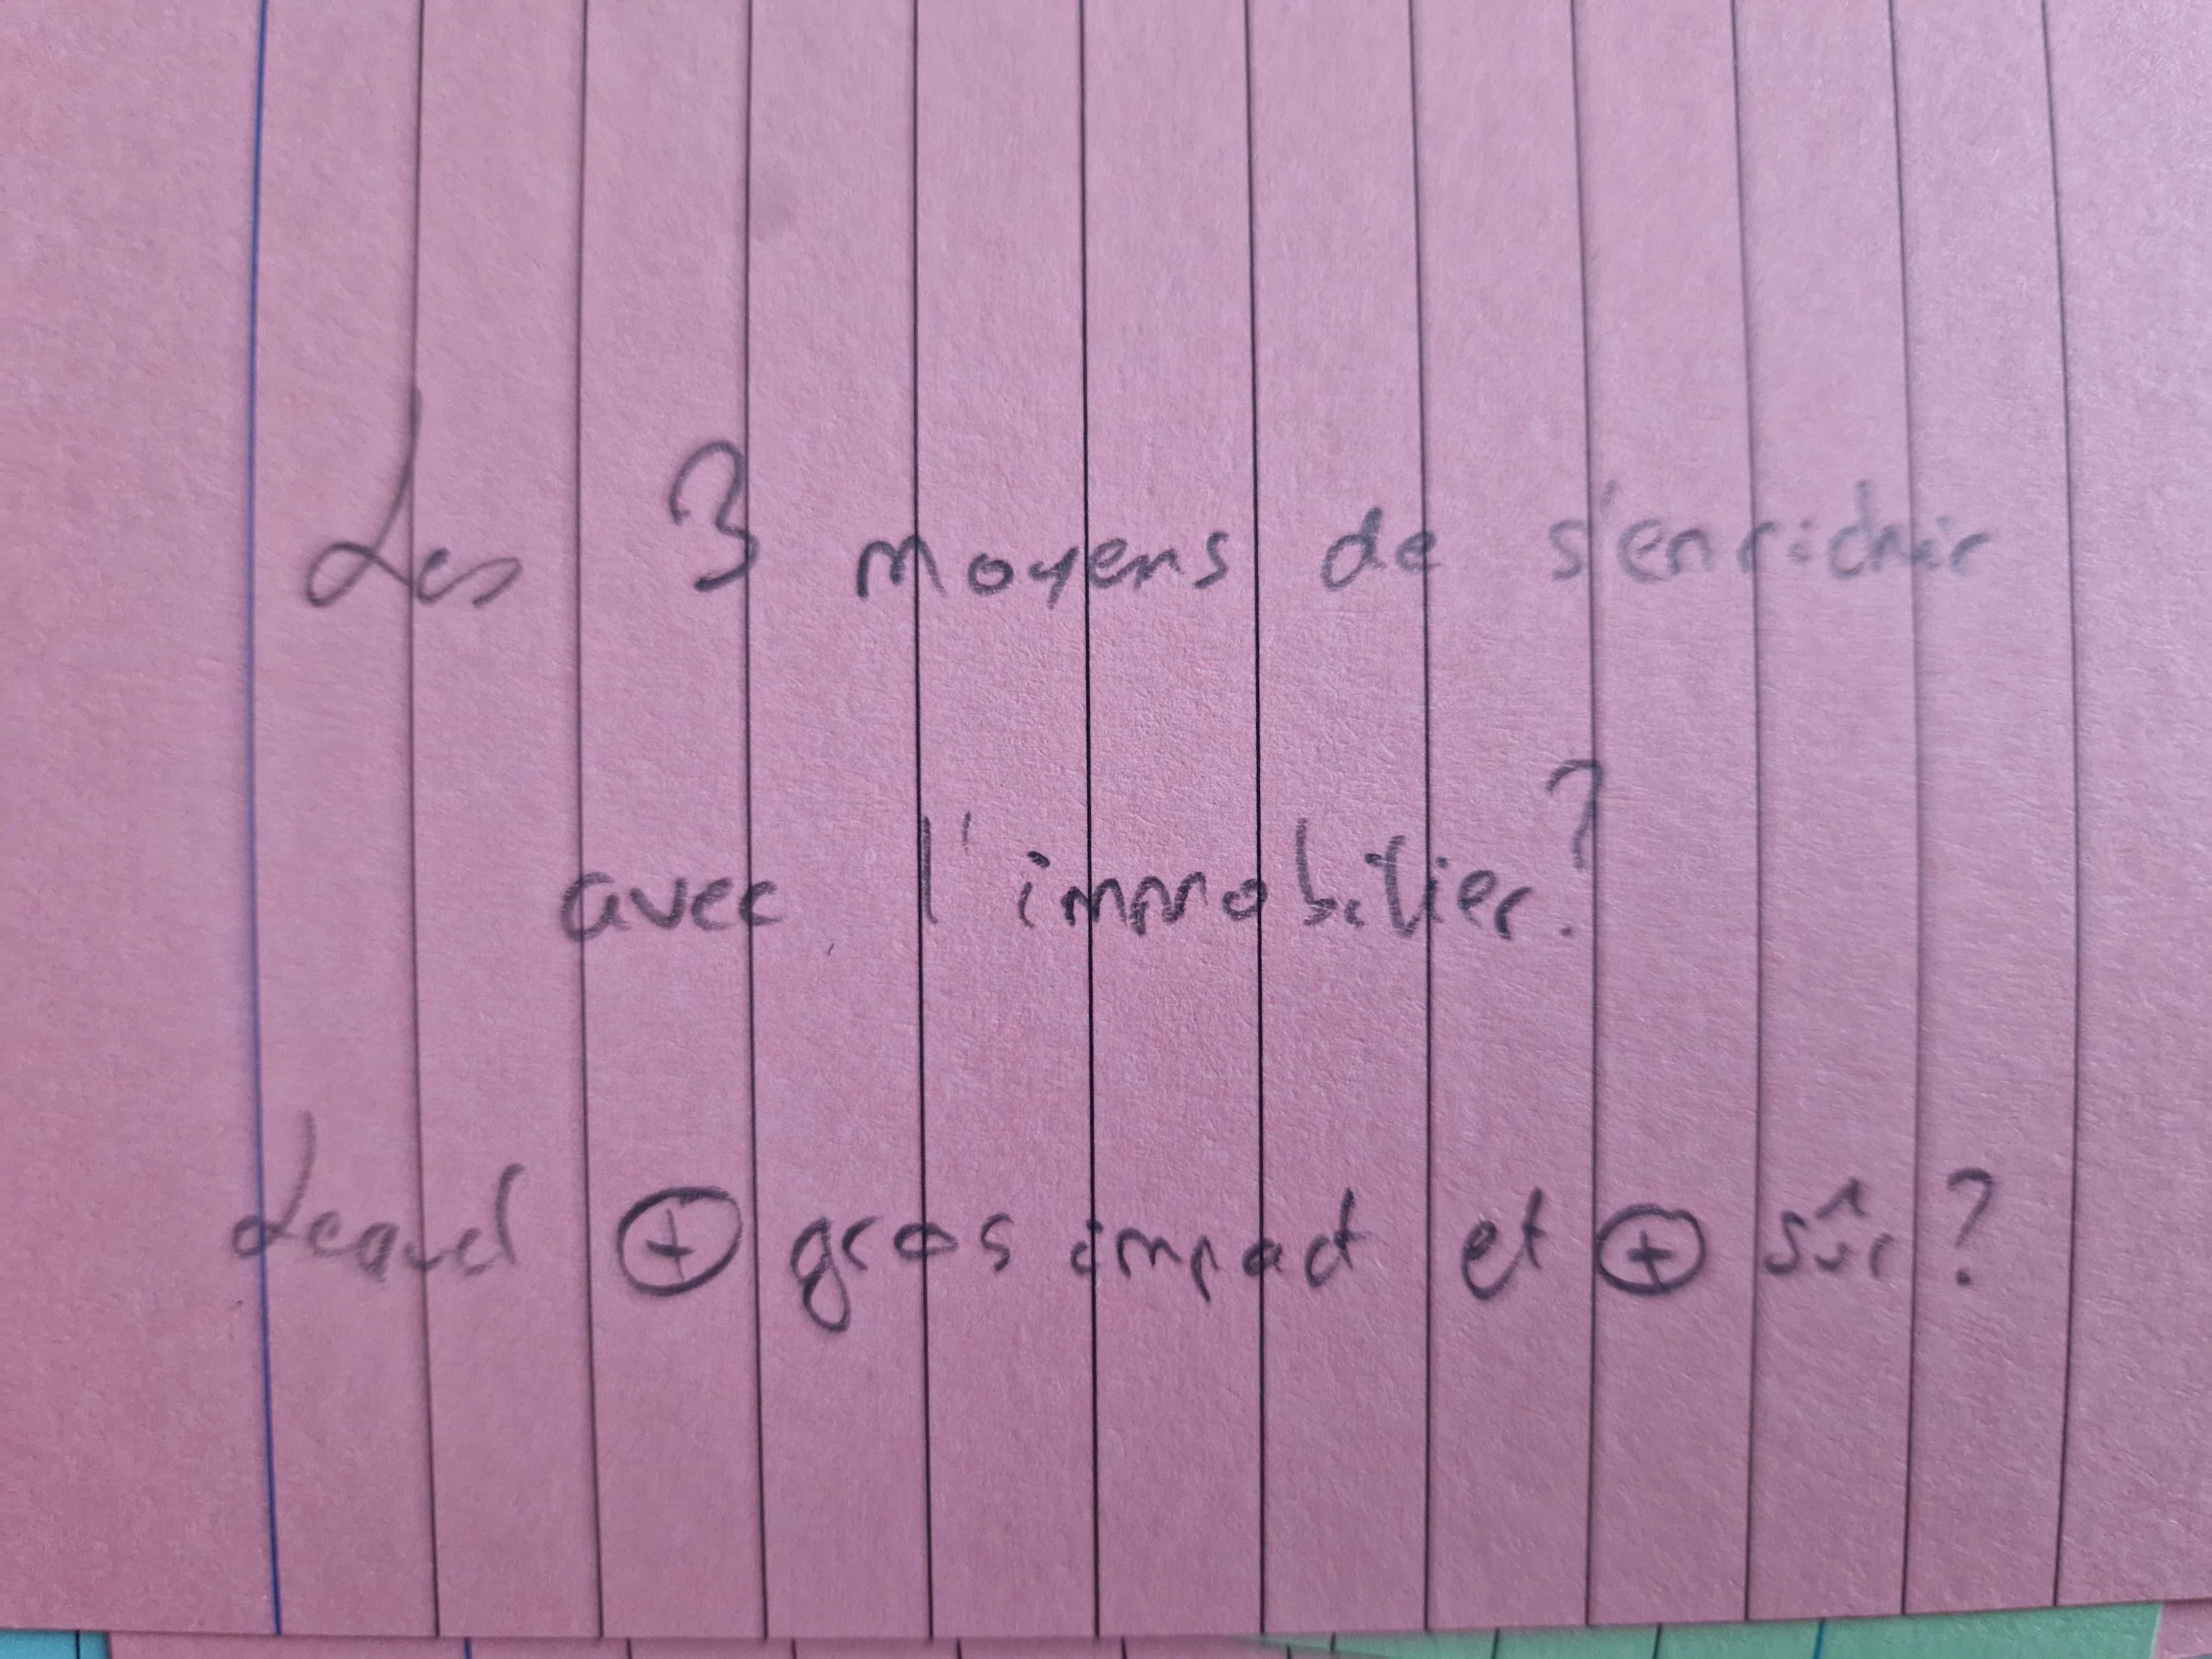 Les 3 moyens de s'enrichir
avec l'immobilier?
Lequel ⊕ gros impact et ⊕ sûr?